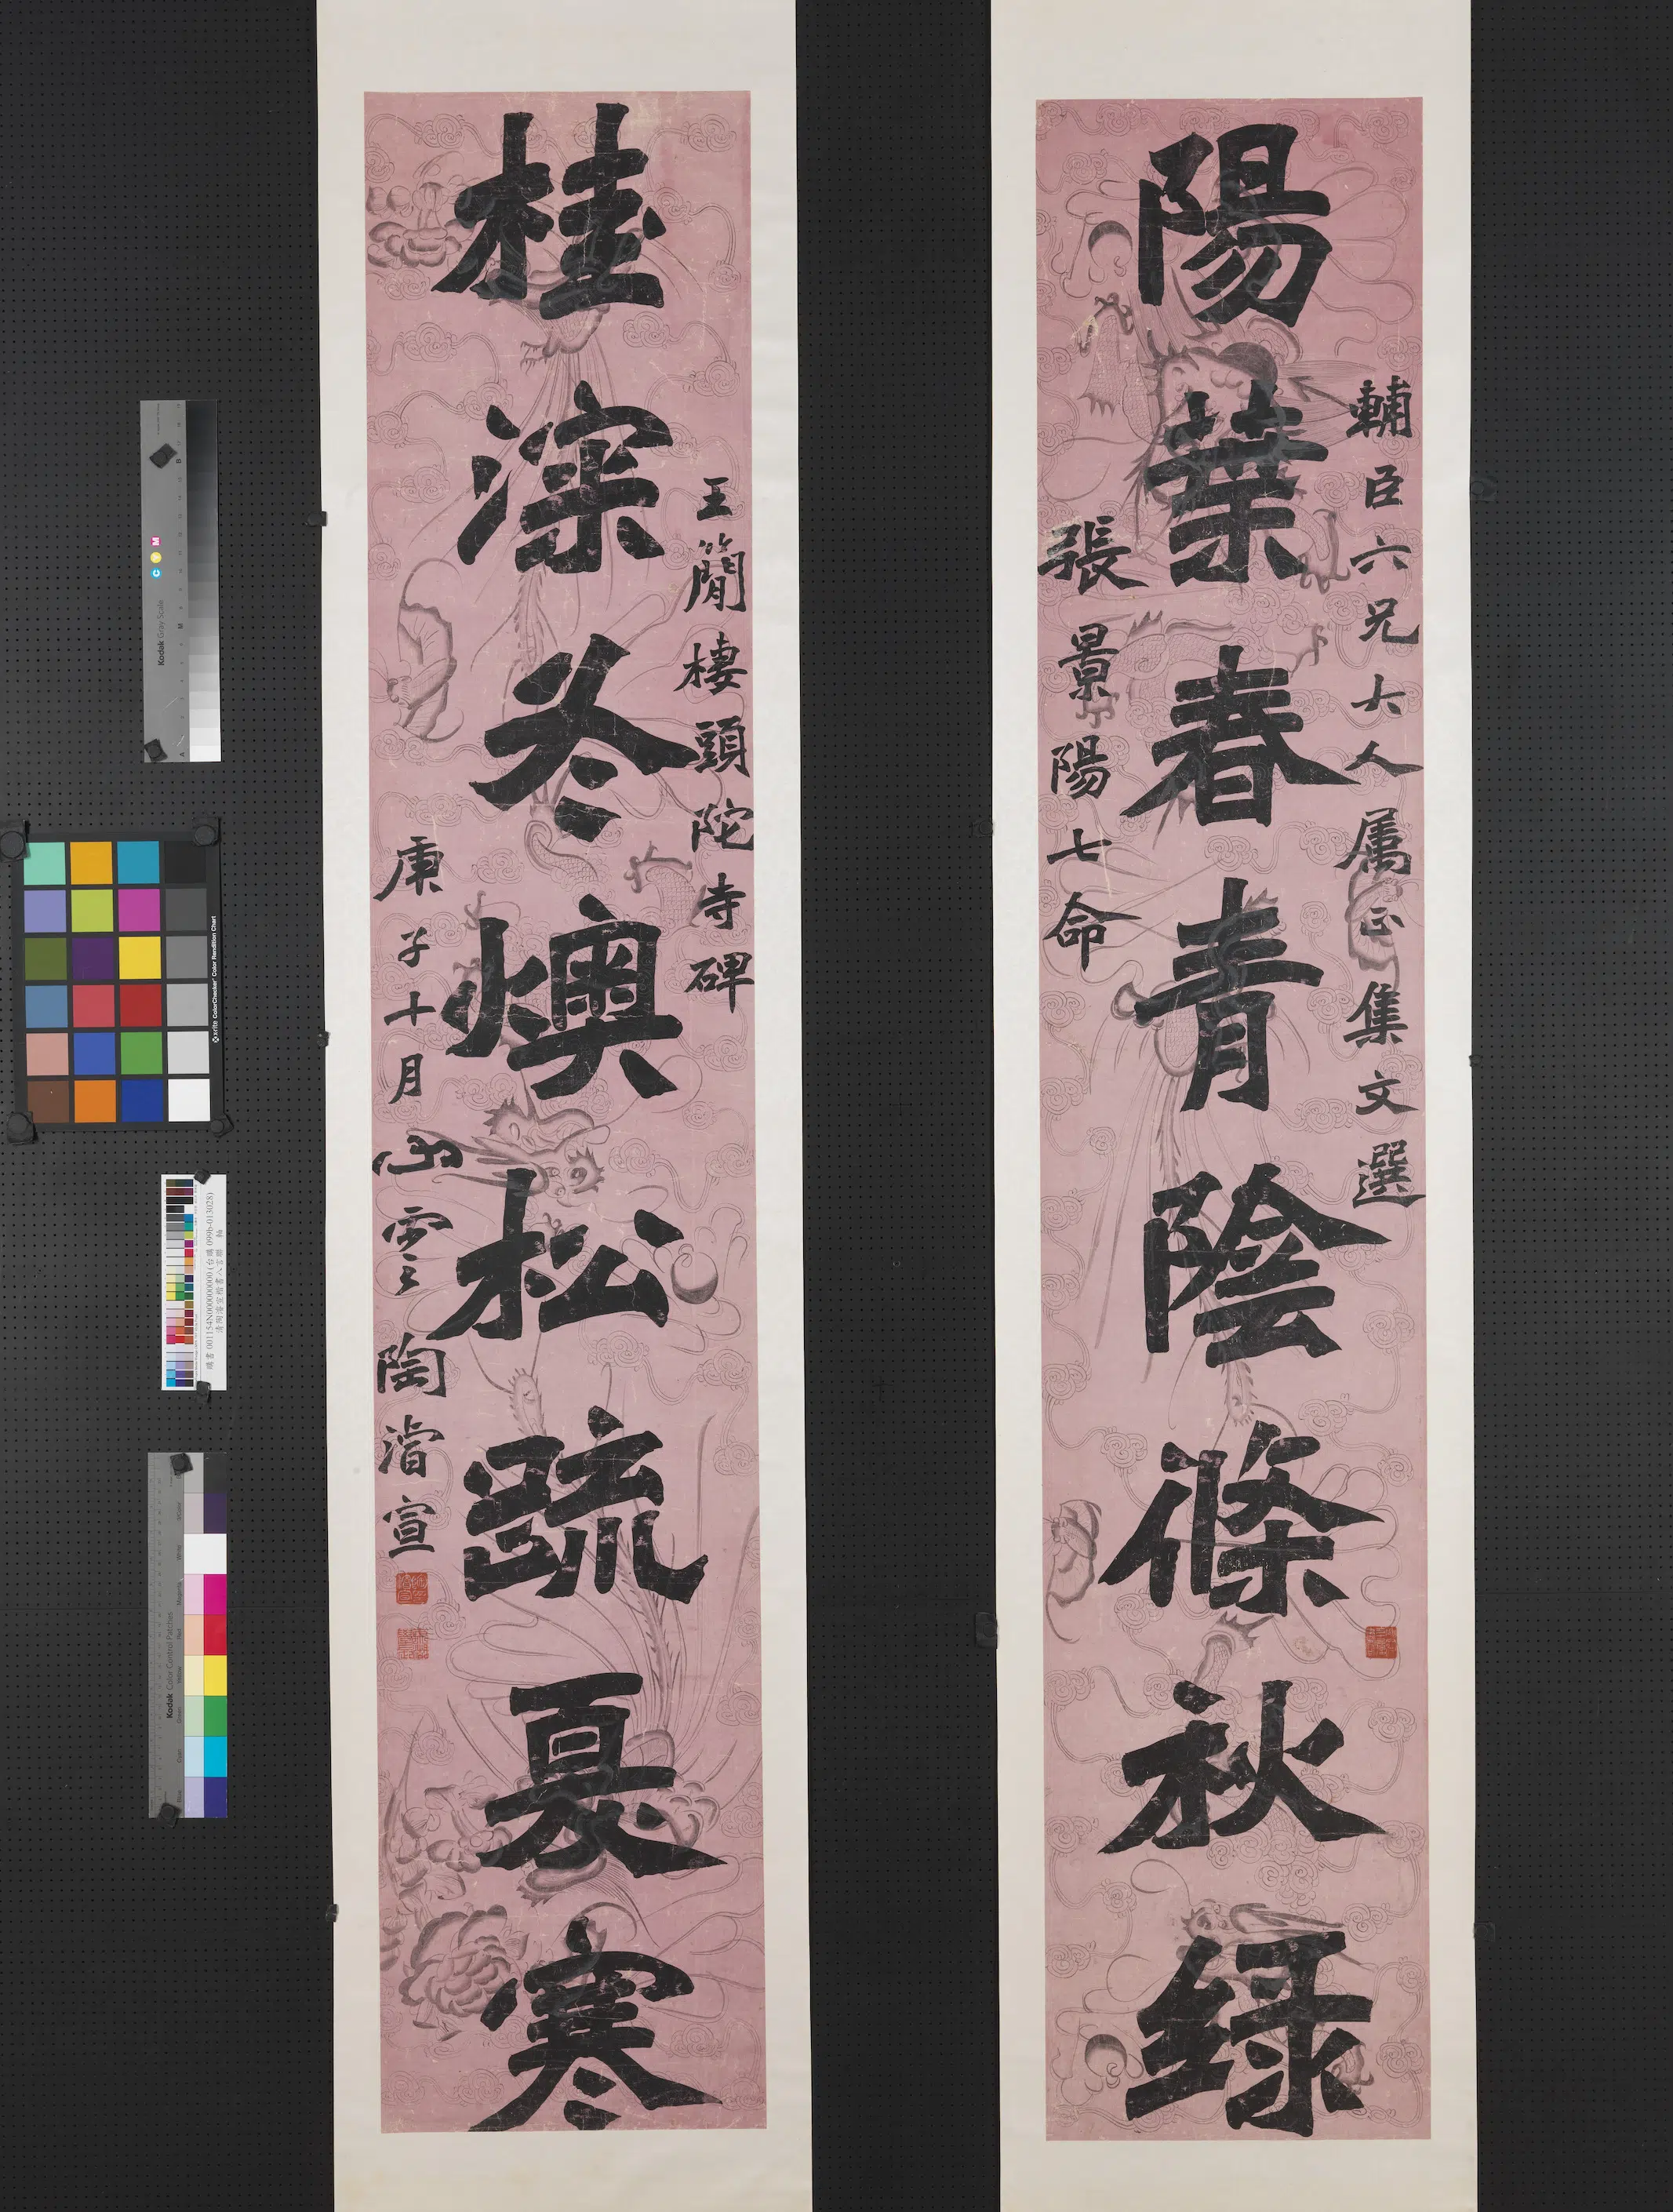 輔臣六兄大人属正集文選
陽葉春青陰條秋緑
張景陽七命
王簡棲頭陀寺碑
桂深冬燠松疏夏寒
庚子十月心雲陶濬宣
Kodak Gray Scale
C Y M
A
M
B
x-rite ColorChecker Color Rendition Chart
清陶濬宣楷書八言聯 軸
Kodak Color Control Patches